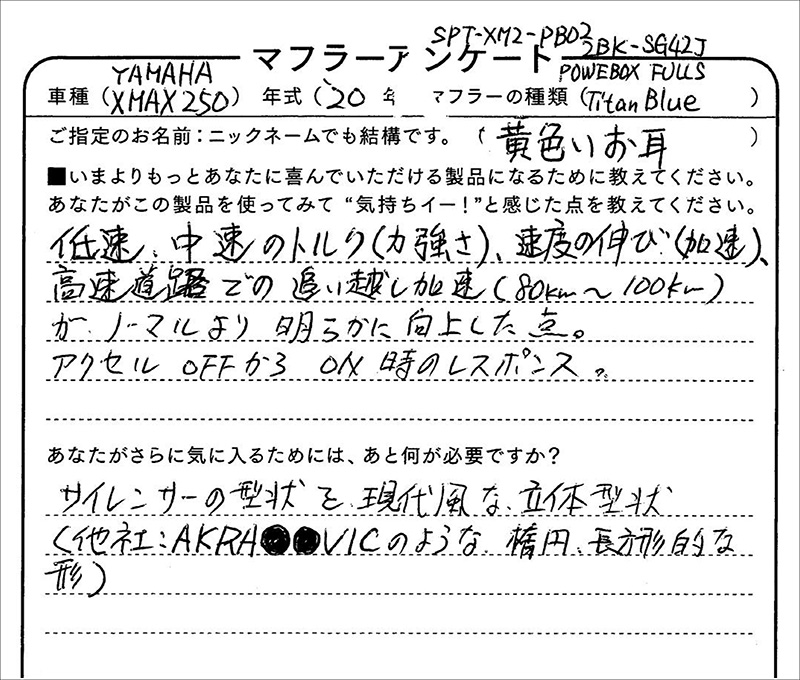 SPT-XM2-PB02
マフラーアンケート 2BK-SG42J
YAMAHA POWEBOX FULLS
車種（XMAX250） 年式（'20 年 マフラーの種類（Titan Blue ）
ご指定のお名前：ニックネームでも結構です。（ 黄色いお耳 ）
■いまよりもっとあなたに喜んでいただける製品になるために教えてください。
あなたがこの製品を使ってみて “気持ちイー！”と感じた点を教えてください。
低速、中速のトルク（力強さ）、速度の伸び（加速）、
高速道路での追い越し加速（80km〜100km）
が、ノーマルより明らかに向上した点。
アクセル OFFから ON時のレスポンス。
あなたがさらに気に入るためには、あと何が必要ですか？
サイレンサーの型状を、現代風な、立体型状
（他社：AKRA●●VICのような、楕円、長方形的な
形）